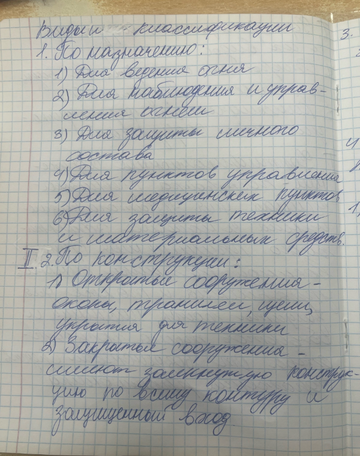 Виды и классификации
1. По назначению:
1) Для ведения огня
2) Для наблюдения и управ-
ления огнём
3) Для защиты личного
состава
4) Для пунктов управления
5) Для медицинских пунктов
6) Для защиты техники
и материальных средств.
II. 2. По конструкции:
1) Открытые сооружения -
окопы, траншеи, щели,
укрытия для техники
2) Закрытые сооружения -
имеют замкнутую конструк-
цию по всему контуру и
защищенный вход
3.